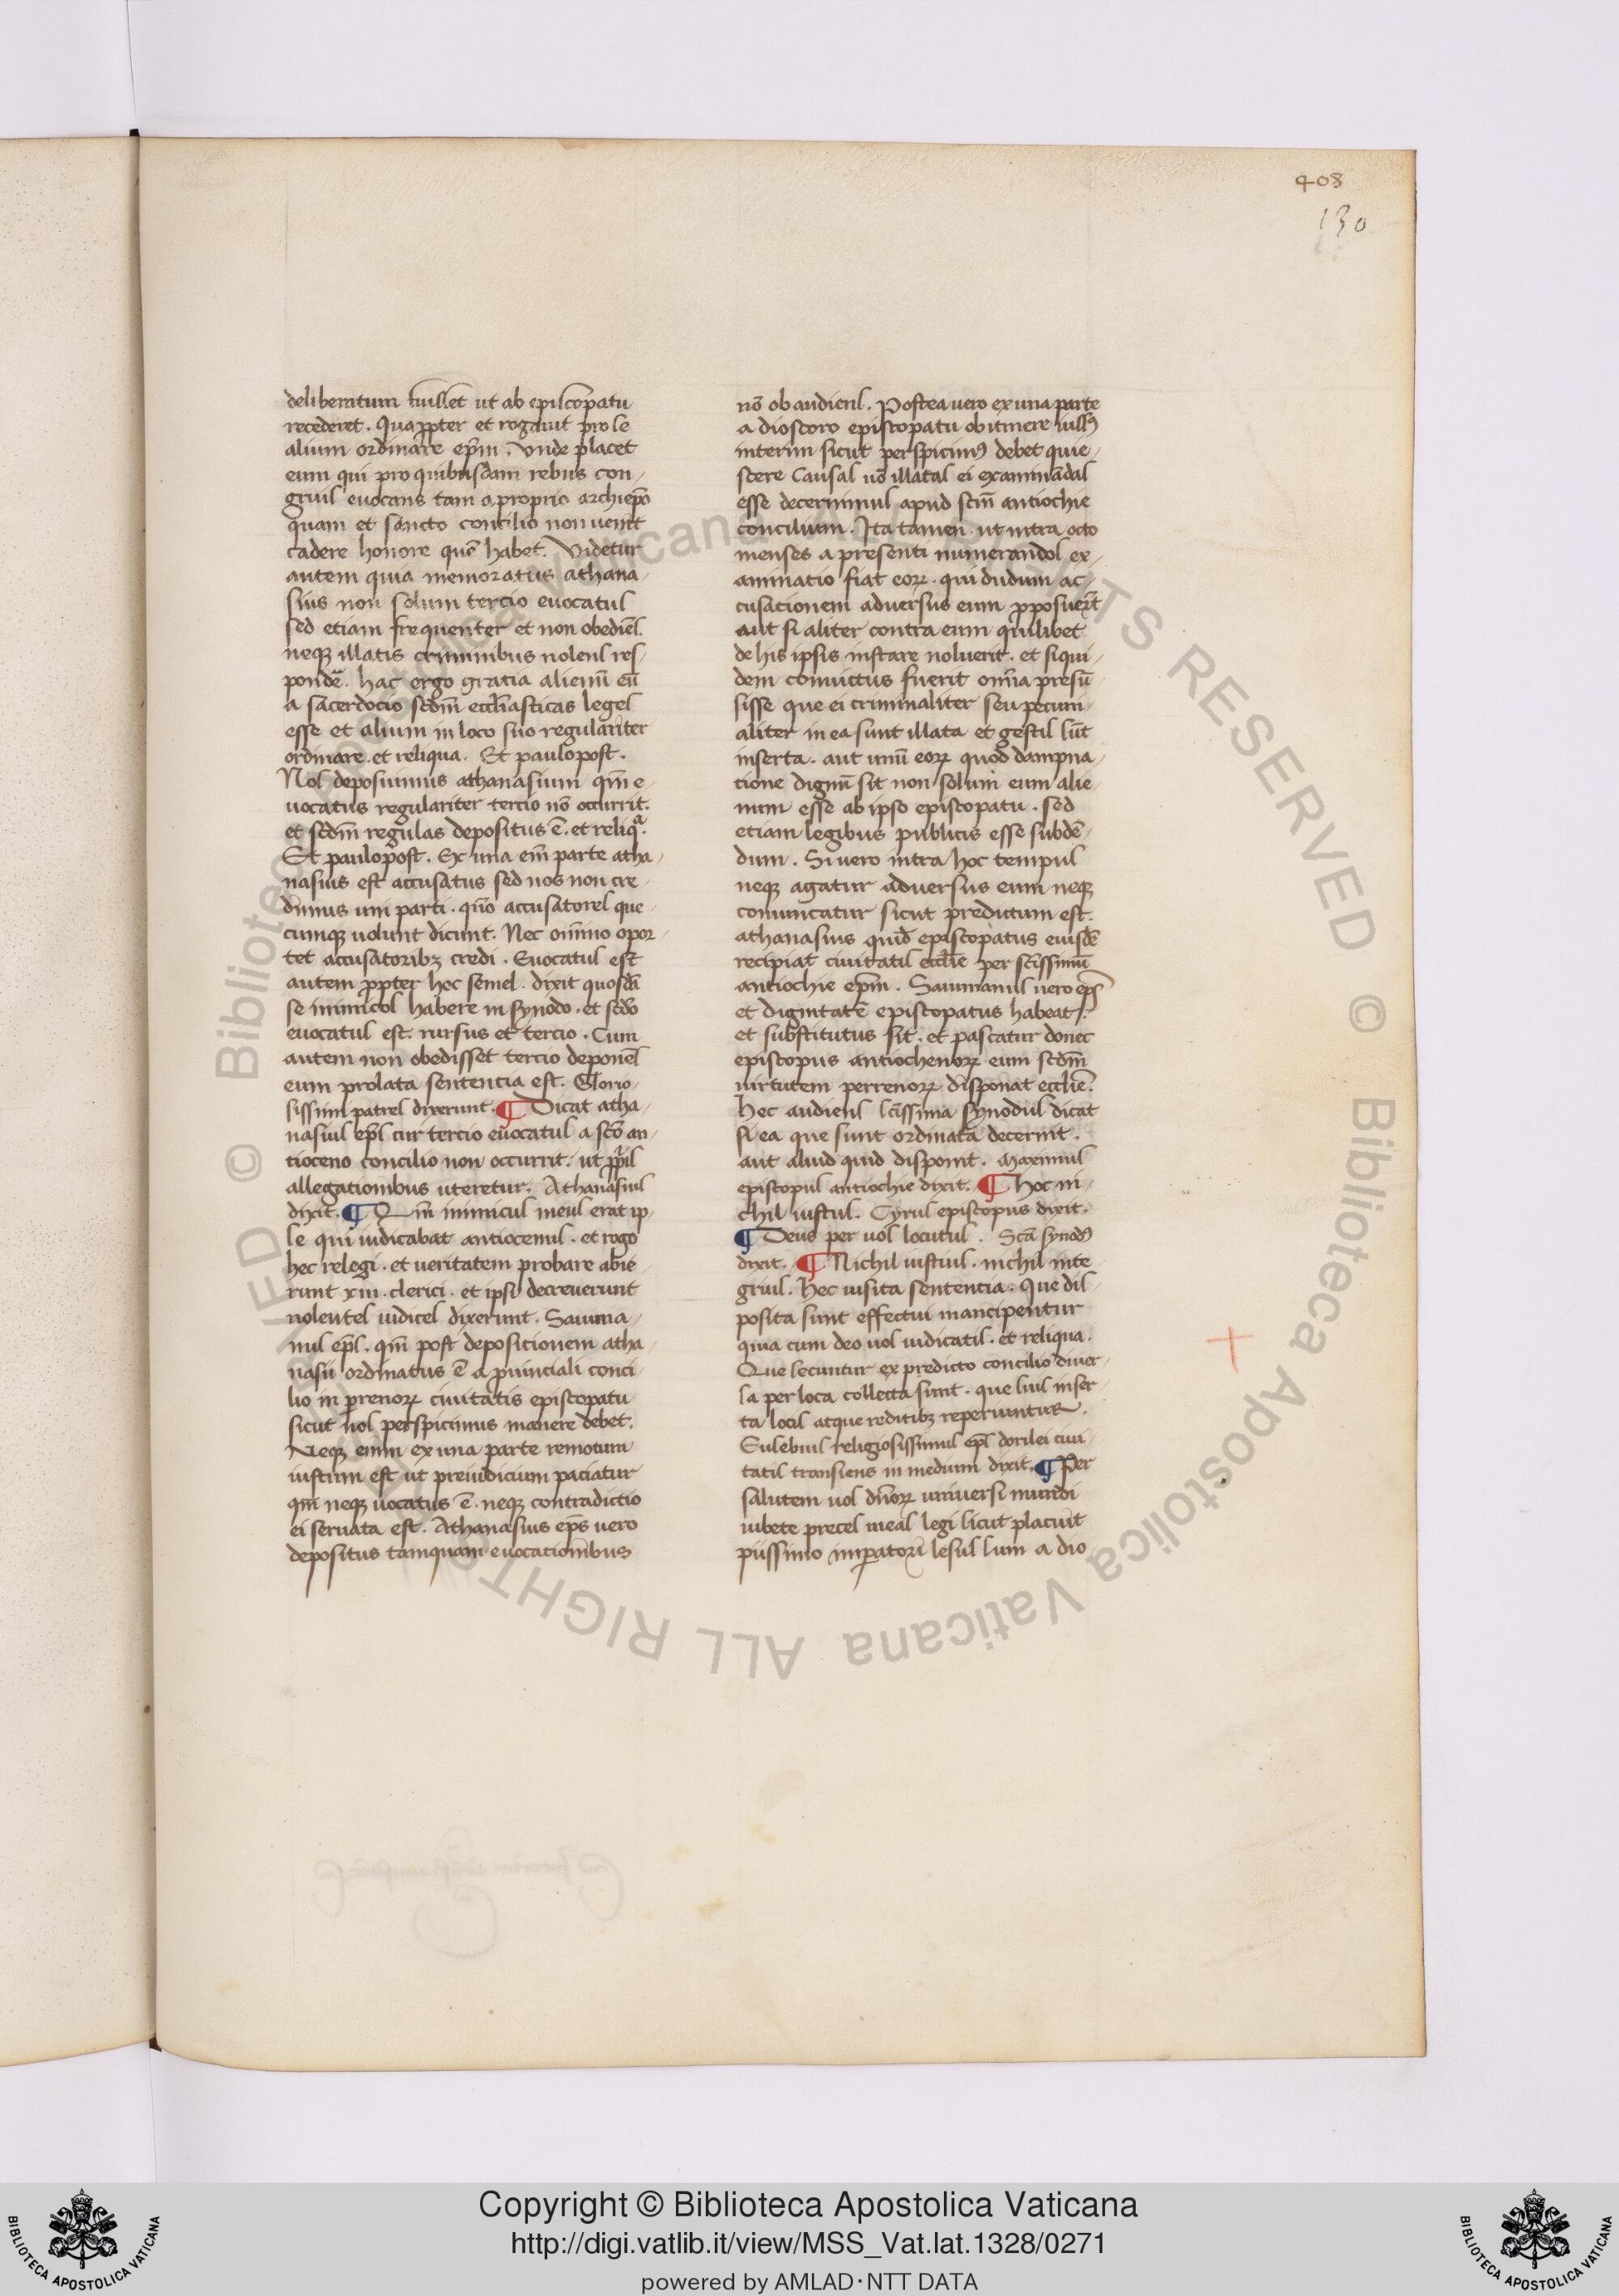 408
130
deliberatum fuisset ut ab episcopatu
recederet. Quappter et rogauit pro se
alium ordinare ep̄m. Vnde placet
eum qui pro quibusdam rebus con-
gruis euocans tam a proprio archiep̄o
quam et sancto concilio non uenit
cadere honore quē habet. Videtur
autem quia memoratus athana-
sius non solum tercio euocatus
sed etiam frequenter et non obediēs.
neqꝫ illatis criminibus nolens res-
pondē. hac ergo gratia alienū eū
a sacerdocio scdm̄ eccliasticas leges
esse et alium in loco suo regulariter
ordinare. et reliqua. Et paulopost.
Nos deposuimus athanasium qm̄ e-
uocatus regulariter tercio nō occurrit.
et scdm̄ regulas depositus ē. et reliqᵃ.
Et paulopost. Ex una em̄ parte atha-
nasius est accusatus sed nos non cre-
dimus uni parti. quō accusatores que-
cumqꝫ uolunt dicunt. Nec omīno opor-
tet accusatoribꝫ credi. Euocatus est
autem ppter hoc semel. dixit quosdā
se inimicos habere in synodo. et scdō
euocatus est. rursus et tercio. Cum
autem non obedisset tercio deponēs
eum prolata sentencia est. Glorio-
sissimi patres dixerunt. ¶ Dicat atha-
nasius ep̄s cur tercio euocatus a scō an-
tioceno concilio non occurrit. ut pp̄iis
allegationibus uteretur. Athanasius
dixit. ¶ Qm̄ inimicus meus erat ip-
se qui iudicabat antiocenus. et rogo
hec relegi. et ueritatem probare abie-
runt xiii. clerici. et ipsi decreuerunt
nolentes iudices dixerunt. Sauina-
nus ep̄s. qm̄ post depositionem atha-
nasii ordinatus ē a puinciali conci-
lio in prenorꝝ ciuitatis episcopatu
sicut nos perspicimus manere debet.
Neqꝫ enim ex una parte remotum
iustum est ut preiudicium paciatur
qm̄ neqꝫ uocatus ē. neqꝫ contradictio
ei seruata est. Athanasius ep̄s uero
depositus tamquam euocationibus
nō obaudiens. Postea uero ex una parte
a dioscoro episcopatu obtinere iussꝰ
interim sicut perspicimꝰ debet quie-
scere Causas uō illatas ei examinādas
esse decernimus apud scm̄ antiochie
concilium. Ita tamen ut intra octo
menses a presenti numerandos ex-
aminatio fiat eorꝝ. qui dudum ac-
cusationem aduersus eum pposuerūt
aut si aliter contra eum quilibet
de his ipsis instare noluerit. et siqui-
dem conuictus fuerit omīa presū-
sisse que ei criminaliter seu pecuni-
aliter in ea sunt illata et gestis sūt
inserta. aut unū eorꝝ quod dampna-
tione dignū sit non solum eum alie-
num esse ab ipso episcopatu. sed
etiam legibus publicis esse subdē-
dum. Si uero intra hoc tempus
neqꝫ agatur aduersus eum neqꝫ
conuincatur sicut predictum est.
athanasius quid episcopatus eiusdē
recipiat ciuitatis ecclie per sc̄issimū
antiochie ep̄m. Sauinianus uero ep̄s
et dignitatē episcopatus habeat.
et substitutus sit. et pascatur donec
episcopus antiochenorꝝ eum scdm̄
uirtutem perrenorꝝ disponat ecclie.
Hec audiens sc̄issima synodus dicat
si ea que sunt ordinata decernit.
aut aliud quid disponit. Maximus
episcopus antiochie dixit. ¶ Hoc ni-
chil iustius. Cyrus episcopus dixit.
¶ Deus per uos locutus. Scā synodꝰ
dixit. ¶ Nichil iustius. nichil inte-
grius. Hec iusita sentencia. Que dis-
posita sunt effectui mancipentur
quia cum deo uos iudicatis. et reliqua.
Que secuntur ex predicto concilio diuer-
sa per loca collecta sunt. que suis inser-
ta locis atque reditibꝫ reperiuntur.
Eusebius religiosissimus ep̄s dorilei ciui-
tatis transiens in medium dixit. ¶ Per
salutem uos dn̄orꝝ uniuersi mundi
iubete preces meas legi sicut placuit
piissimo imperatori lesus sum a dio